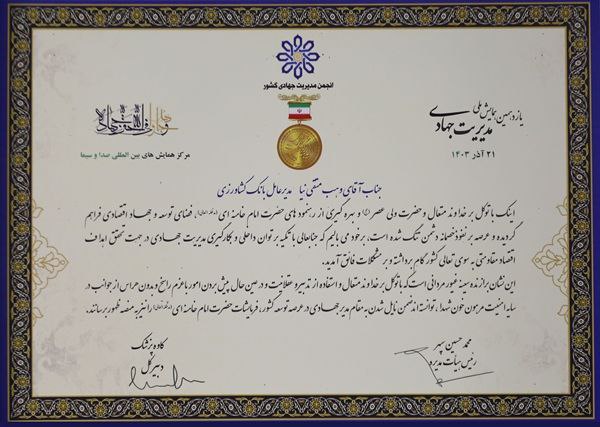 انجمن مدیریت جهادی کشور
یازدهمین همایش ملی
مدیریت جهادی
۲۱ آذر ۱۴۰۳
مرکز همایش های بین المللی صدا و سیما
جناب آقای وهب متقی نیا مدیرعامل بانک کشاورزی
اینک با توکل بر خداوند متعال و حضرت ولی عصر (عج) و بهره گیری از رهنمود های حضرت امام خامنه ای (مدظله العالی)، فضای توسعه و جهاد اقتصادی فراهم
گردیده و عرصه بر نفوذ خصمانه دشمن تنگ شده است، برخود می بالیم که جنابعالی با تکیه بر توان داخلی و بکارگیری مدیریت جهادی در جهت تحقق اهداف
اقتصاد مقاومتی به سوی تعالی کشور گام برداشته و بر مشکلات فائق آمدید.
این نشان برازنده سینه غیور مردانی است که با توکل بر خداوند متعال و استفاده از تدبیر و عقلانیت و در عین حال پیش بردن امور با عزم راسخ و بدون هراس از جوانب در
سایه امنیت مرهون خون شهدا، توانسته اند ضمن نایل شدن به مقام مدیر جهادی در عرصه توسعه کشور، فرمایشات حضرت امام خامنه ای (مدظله العالی) را نیز به منصه ظهور برسانند.
محمد حسین سپهر
رئیس هیأت مدیره
کاوه پزشک
دبیر کل